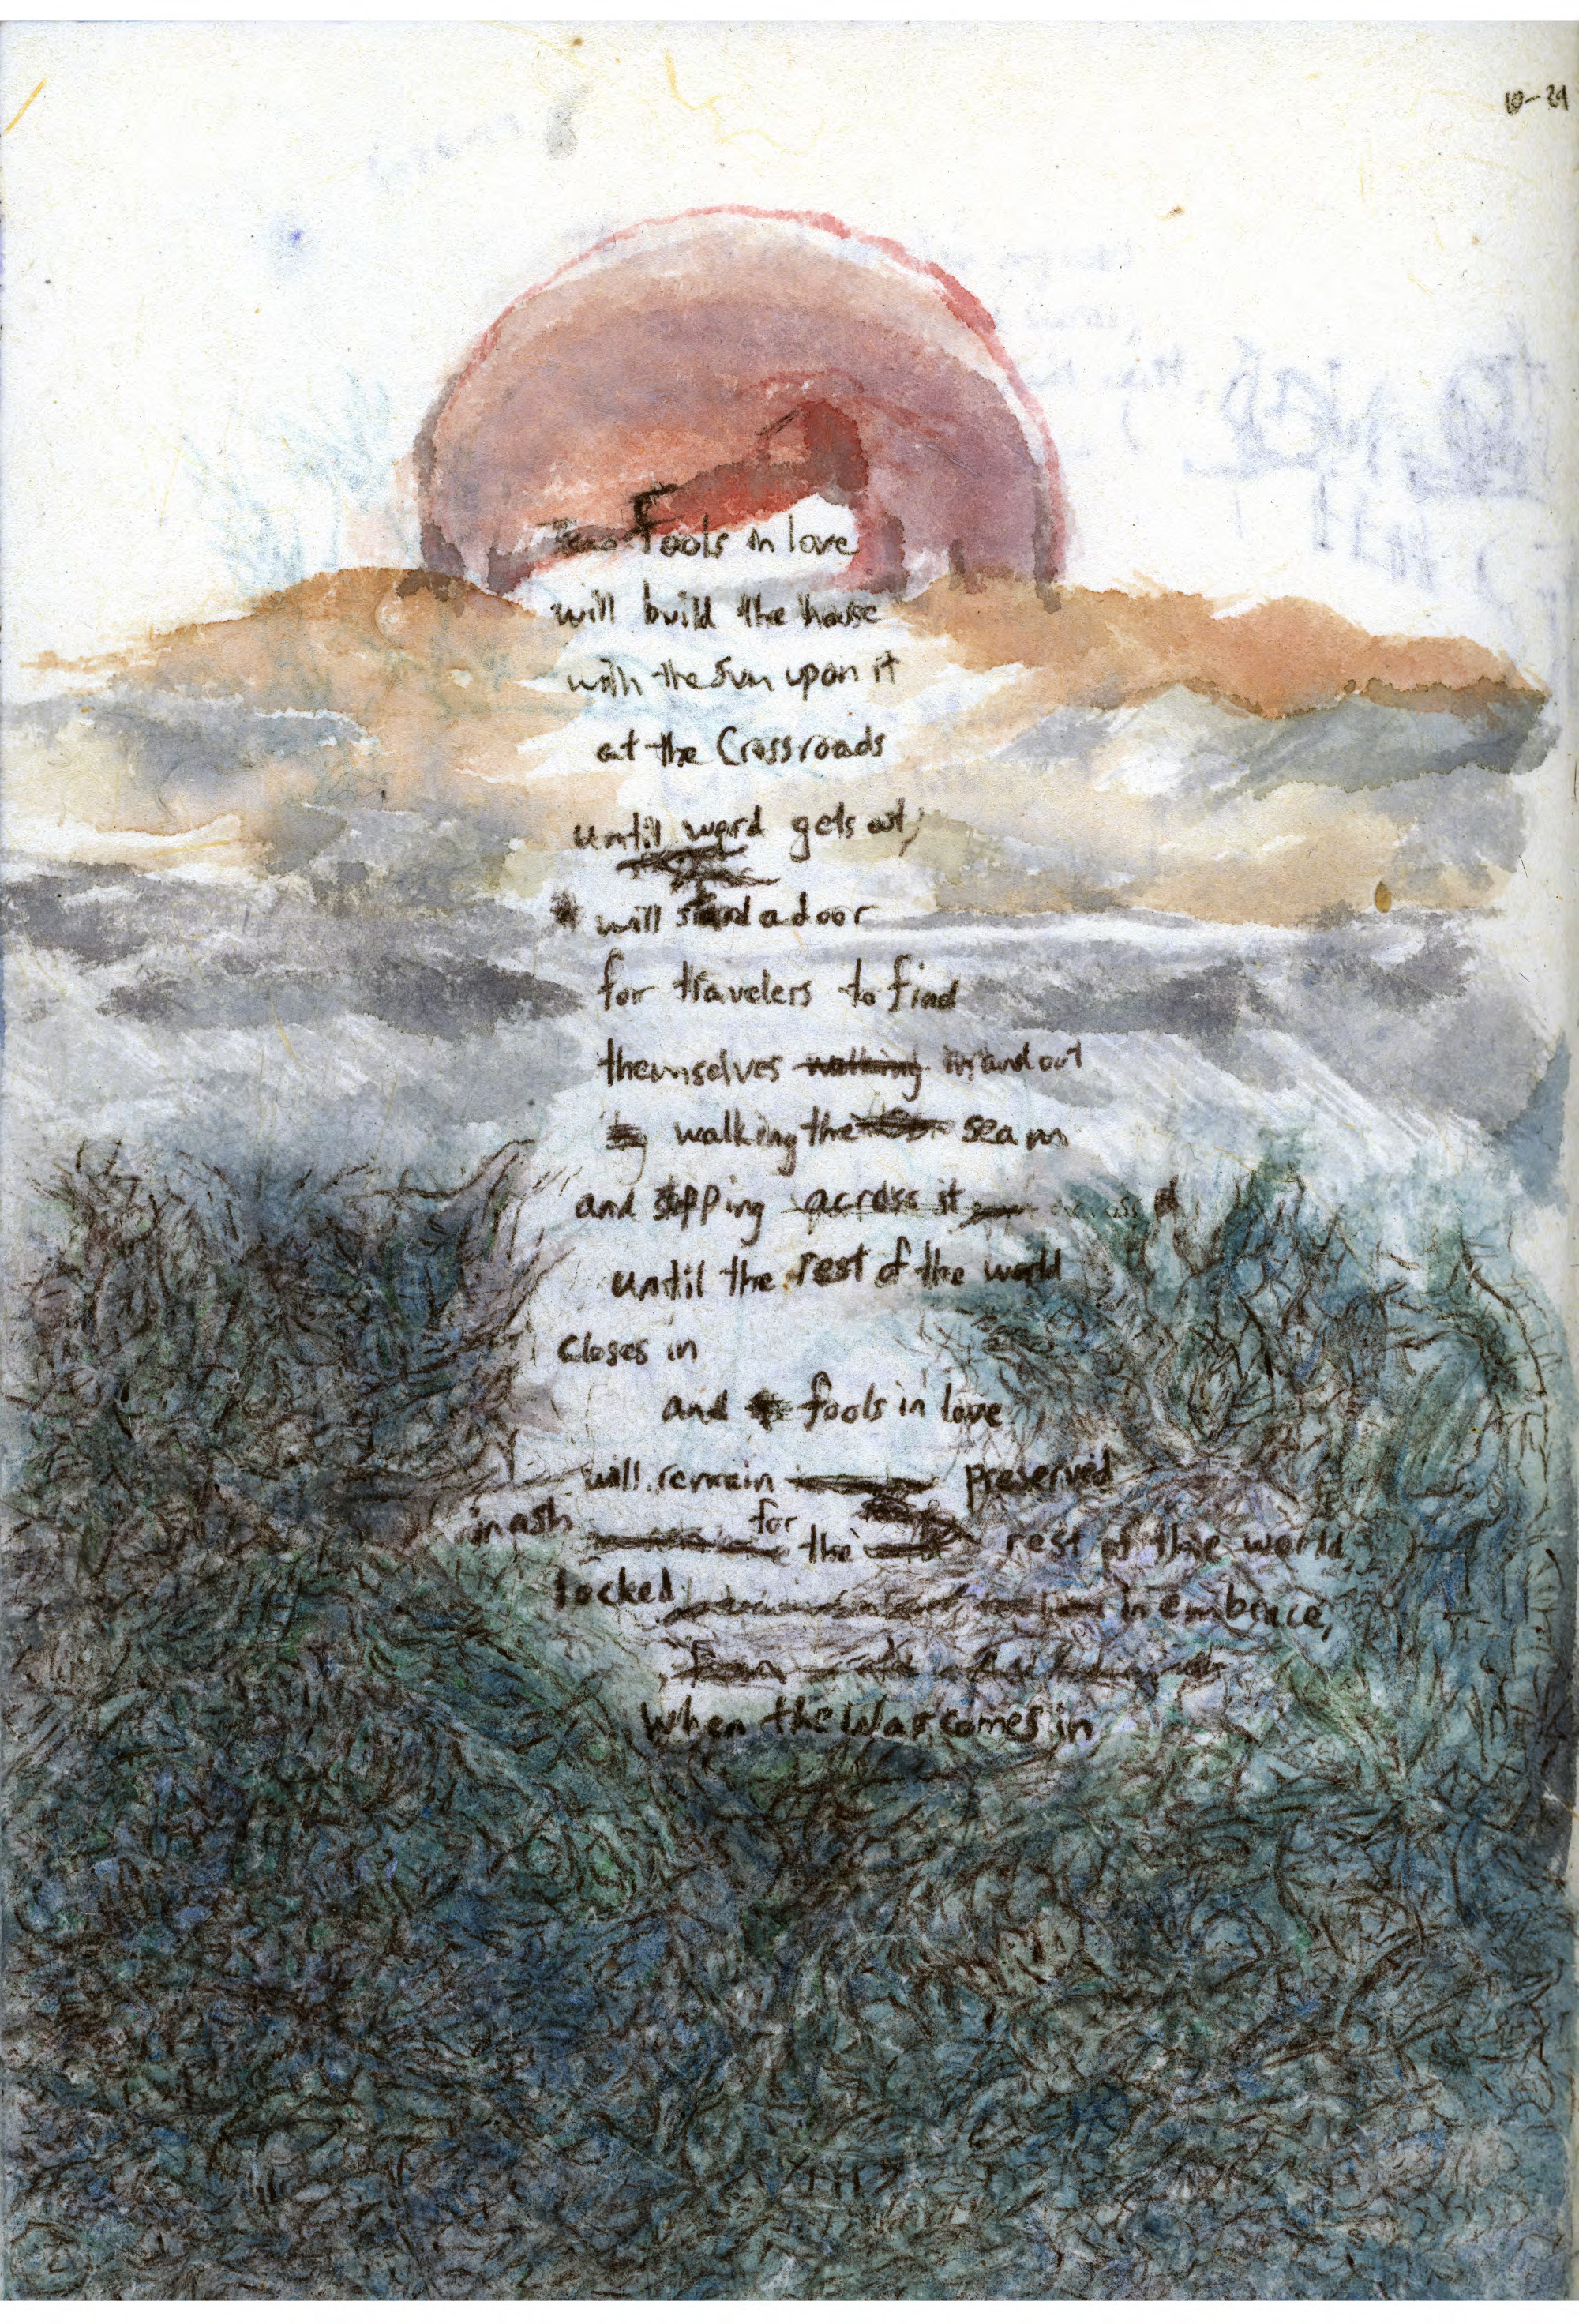 10-29
Fools in love
will build the house
with the sun upon it
at the Crossroads
until word gets out,
will stand a door
for travelers to find
themselves walking in and out
by walking the seam
and stepping across it across it
until the rest of the world
closes in
and fools in love
will remain preserved
in ash for the rest of the world
locked in embrace,
When the War comes in